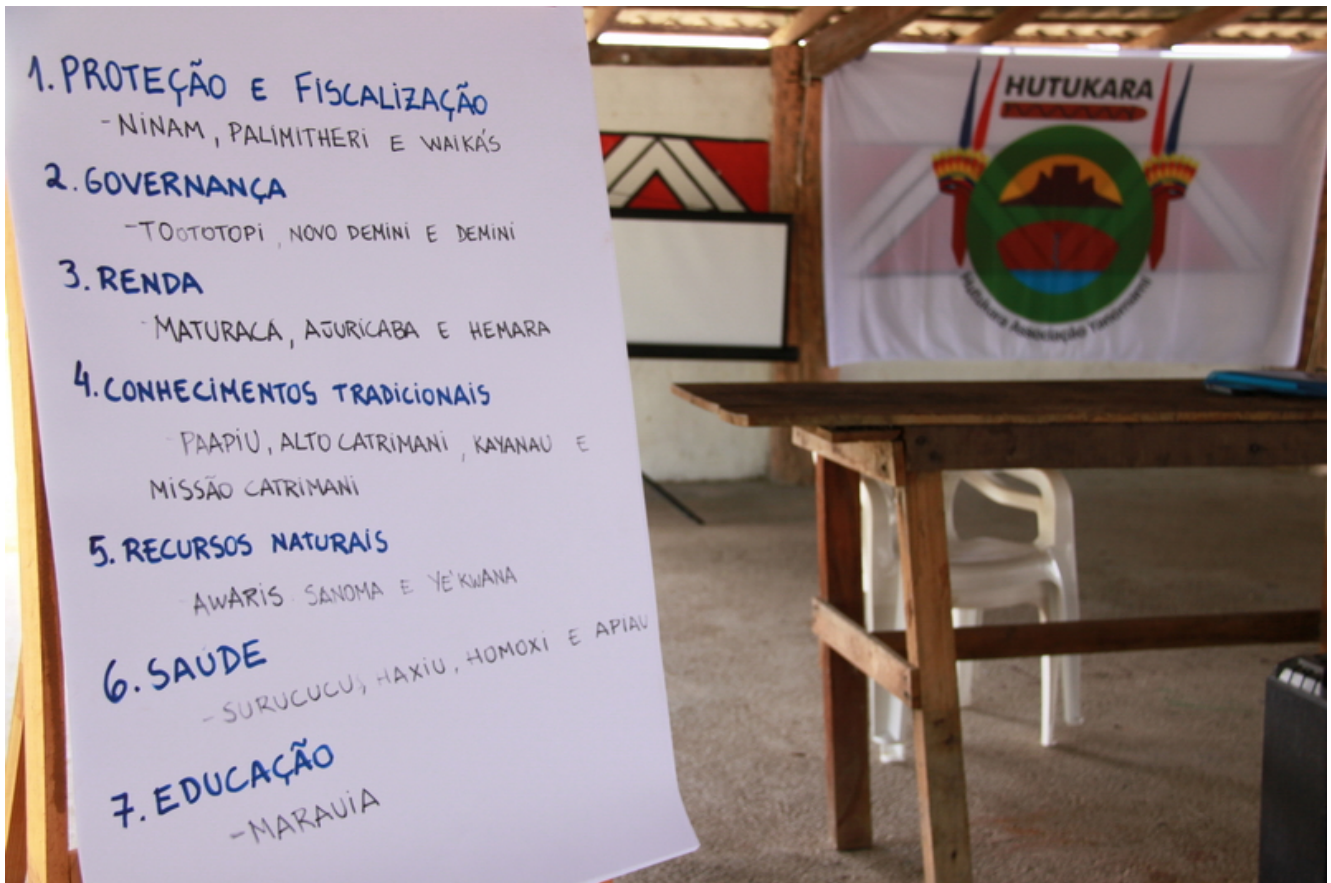 1. PROTEÇÃO E FISCALIZAÇÃO
- NINAM, PALIMITHERI E WAIKÁS
2. GOVERNANÇA
- TOOTOTOPI, NOVO DEMINI E DEMINI
3. RENDA
- MATURACÁ, AJURICABA E HEMARA
4. CONHECIMENTOS TRADICIONAIS
- PAAPIU, ALTO CATRIMANI, KAYANAU E
MISSÃO CATRIMANI
5. RECURSOS NATURAIS
- AWARIS SANOMA E YE'KWANA
6. SAÚDE
- SURUCUCU, HAXIU, HOMOXI E APIAU
7. EDUCAÇÃO
- MARAUIA
HUTUKARA
Hutukara Associação Yanomami